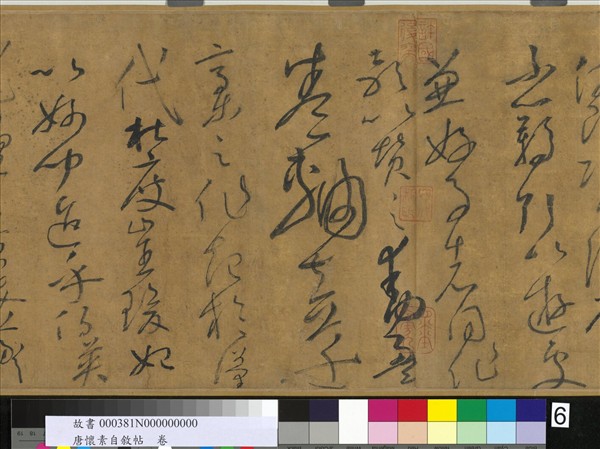 不羈引以遊處
兼好事者同作
歌以贊之動盈
卷軸夫草
稾之作起於漢
代杜度崔瑗始
以妙聞迨乎伯英
故書 000381N000000000
唐懷素自敘帖 卷
6